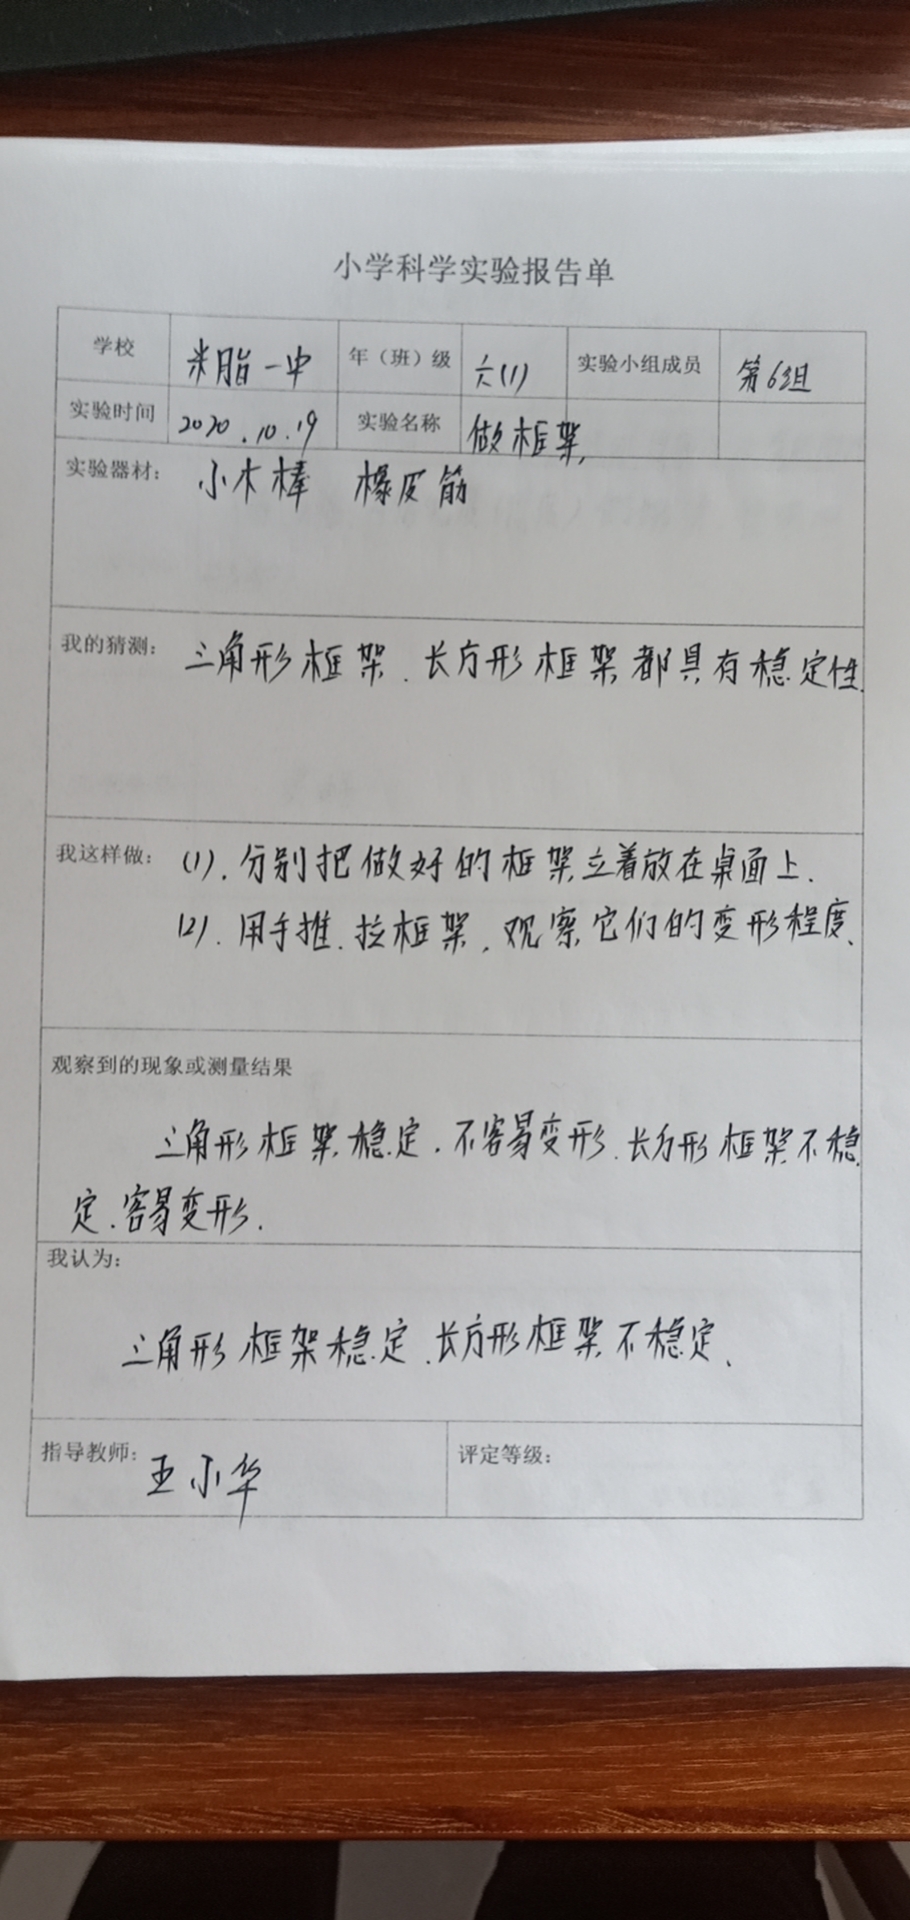 小学科学实验报告单
学校 米脂一中 年（班）级 六(1) 实验小组成员 第6组
实验时间 2020.10.19 实验名称 做框架.
实验器材： 小木棒 橡皮筋
我的猜测： 三角形框架、长方形框架都具有稳定性.
我这样做： (1).分别把做好的框架立着放在桌面上.
(2).用手推、拉框架,观察它们的变形程度、
观察到的现象或测量结果
三角形框架稳定.不容易变形.长方形框架不稳
定.容易变形.
我认为：
三角形框架稳定.长方形框架不稳定、
指导教师： 王小华 评定等级：